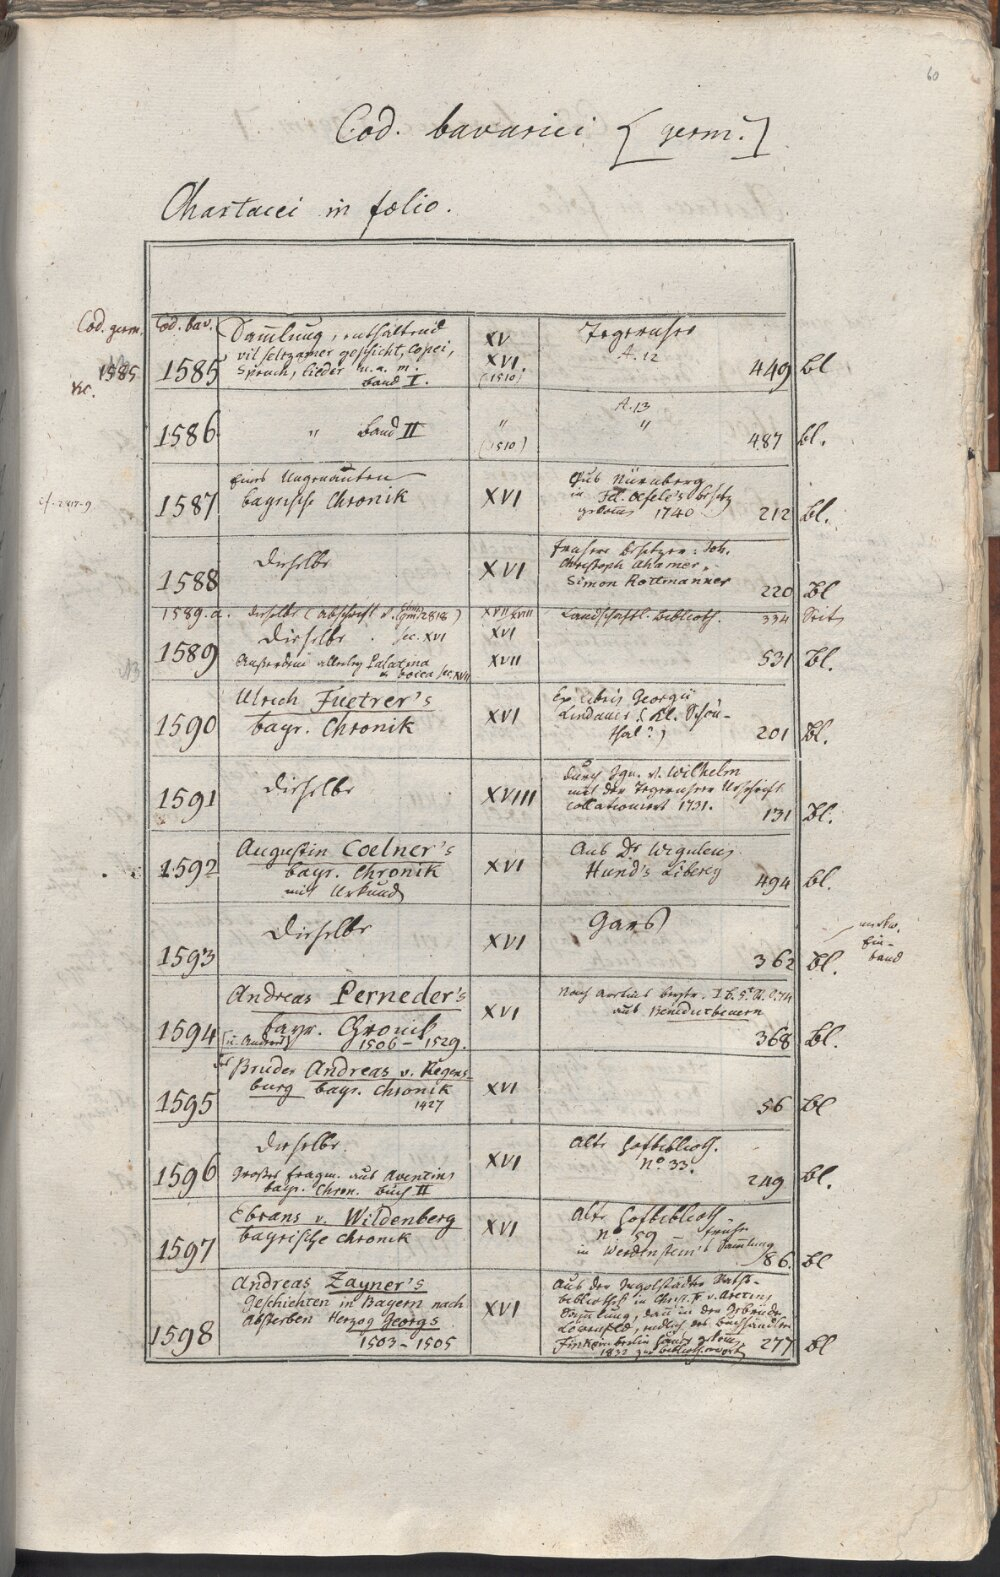 60
Cod. bavarici [germ.]
Chartacei in folio.
Cod. germ.
1585
Cod. bav.
1585
Sammlung, enthaltend
vil seltzamer geschicht, Copei,
Spruch, lieder u. a. m.
Band I.
XV
XVI.
(1510)
Tegernsee
A. 12
449 Bl
1586
" Band II
"
(1510)
A. 13
"
487 Bl.
1587
Eines Ungenannten
bayrische Chronik
XVI
Aus Nürnberg
in Fel. Oefele's Besitz
gekomen 1740
212 Bl.
1588
Dieselbe
XVI
frühere Besitzer: Joh.
Christoph Ahamer,
Simon Rottmanner
220 Bl
1589.a.
Dieselbe (Abschrift v. Cgm 2818)
XVII/XVIII
Landschaftl. Biblioth.
334 Seit
1589
Dieselbe. sec. XVI
Außerdem allerley Palatina
u. boica sec. XVII
XVI
XVII
531 Bl.
1590
Ulrich Fuetrer's
bayr. Chronik
XVI
Ex libris Georgii
Lindauer (Kl. Schön-
thal?)
201 Bl.
1591
Dieselbe
XVIII
durch Ign. v. Wilhelm
mit der Tegernseer Urschrift
collationiert 1731.
131 Bl.
1592
Augustin Coelner's
bayr. Chronik
mit Urkund
XVI
Aus Dr Wiguleus
Hund's Liberey
494 Bl.
1593
Dieselbe
XVI
Gars
362 Bl.
Ein-
band
1594
Andreas Perneder's
bayr. Chronik
(u. Anderes) 1506 – 1529.
XVI
aus Benedictbeuern
368 Bl.
1595
Bruder Andreas v. Regens-
burg bayr. Chronik
1427
XVI
56 Bl
1596
Dieselbe.
Großes Fragm. aus Aventins
bayr. Chron. Buch II
XVI
Alte Hofbiblioth.
No 33.
249 Bl.
1597
Ebrans v. Wildenberg
bayrische Chronik
XVI
Alte Hofbiblioth
No 59 früher
in Sammlung
86. Bl
1598
Andreas Zayner's
Geschichten in Bayern nach
Absterben Herzog Georgs
1503 – 1505
XVI
Aus der Ingolstädter Raths-
bibliothek in Christ. Fr v. Aretins
Sammlung, dann in der Gebrüder
Löwenfeld, endlich des Buchhändlers
Finke in Berlin Hände gekom.
1832 zur Biblioth. erworb.
277 Bl